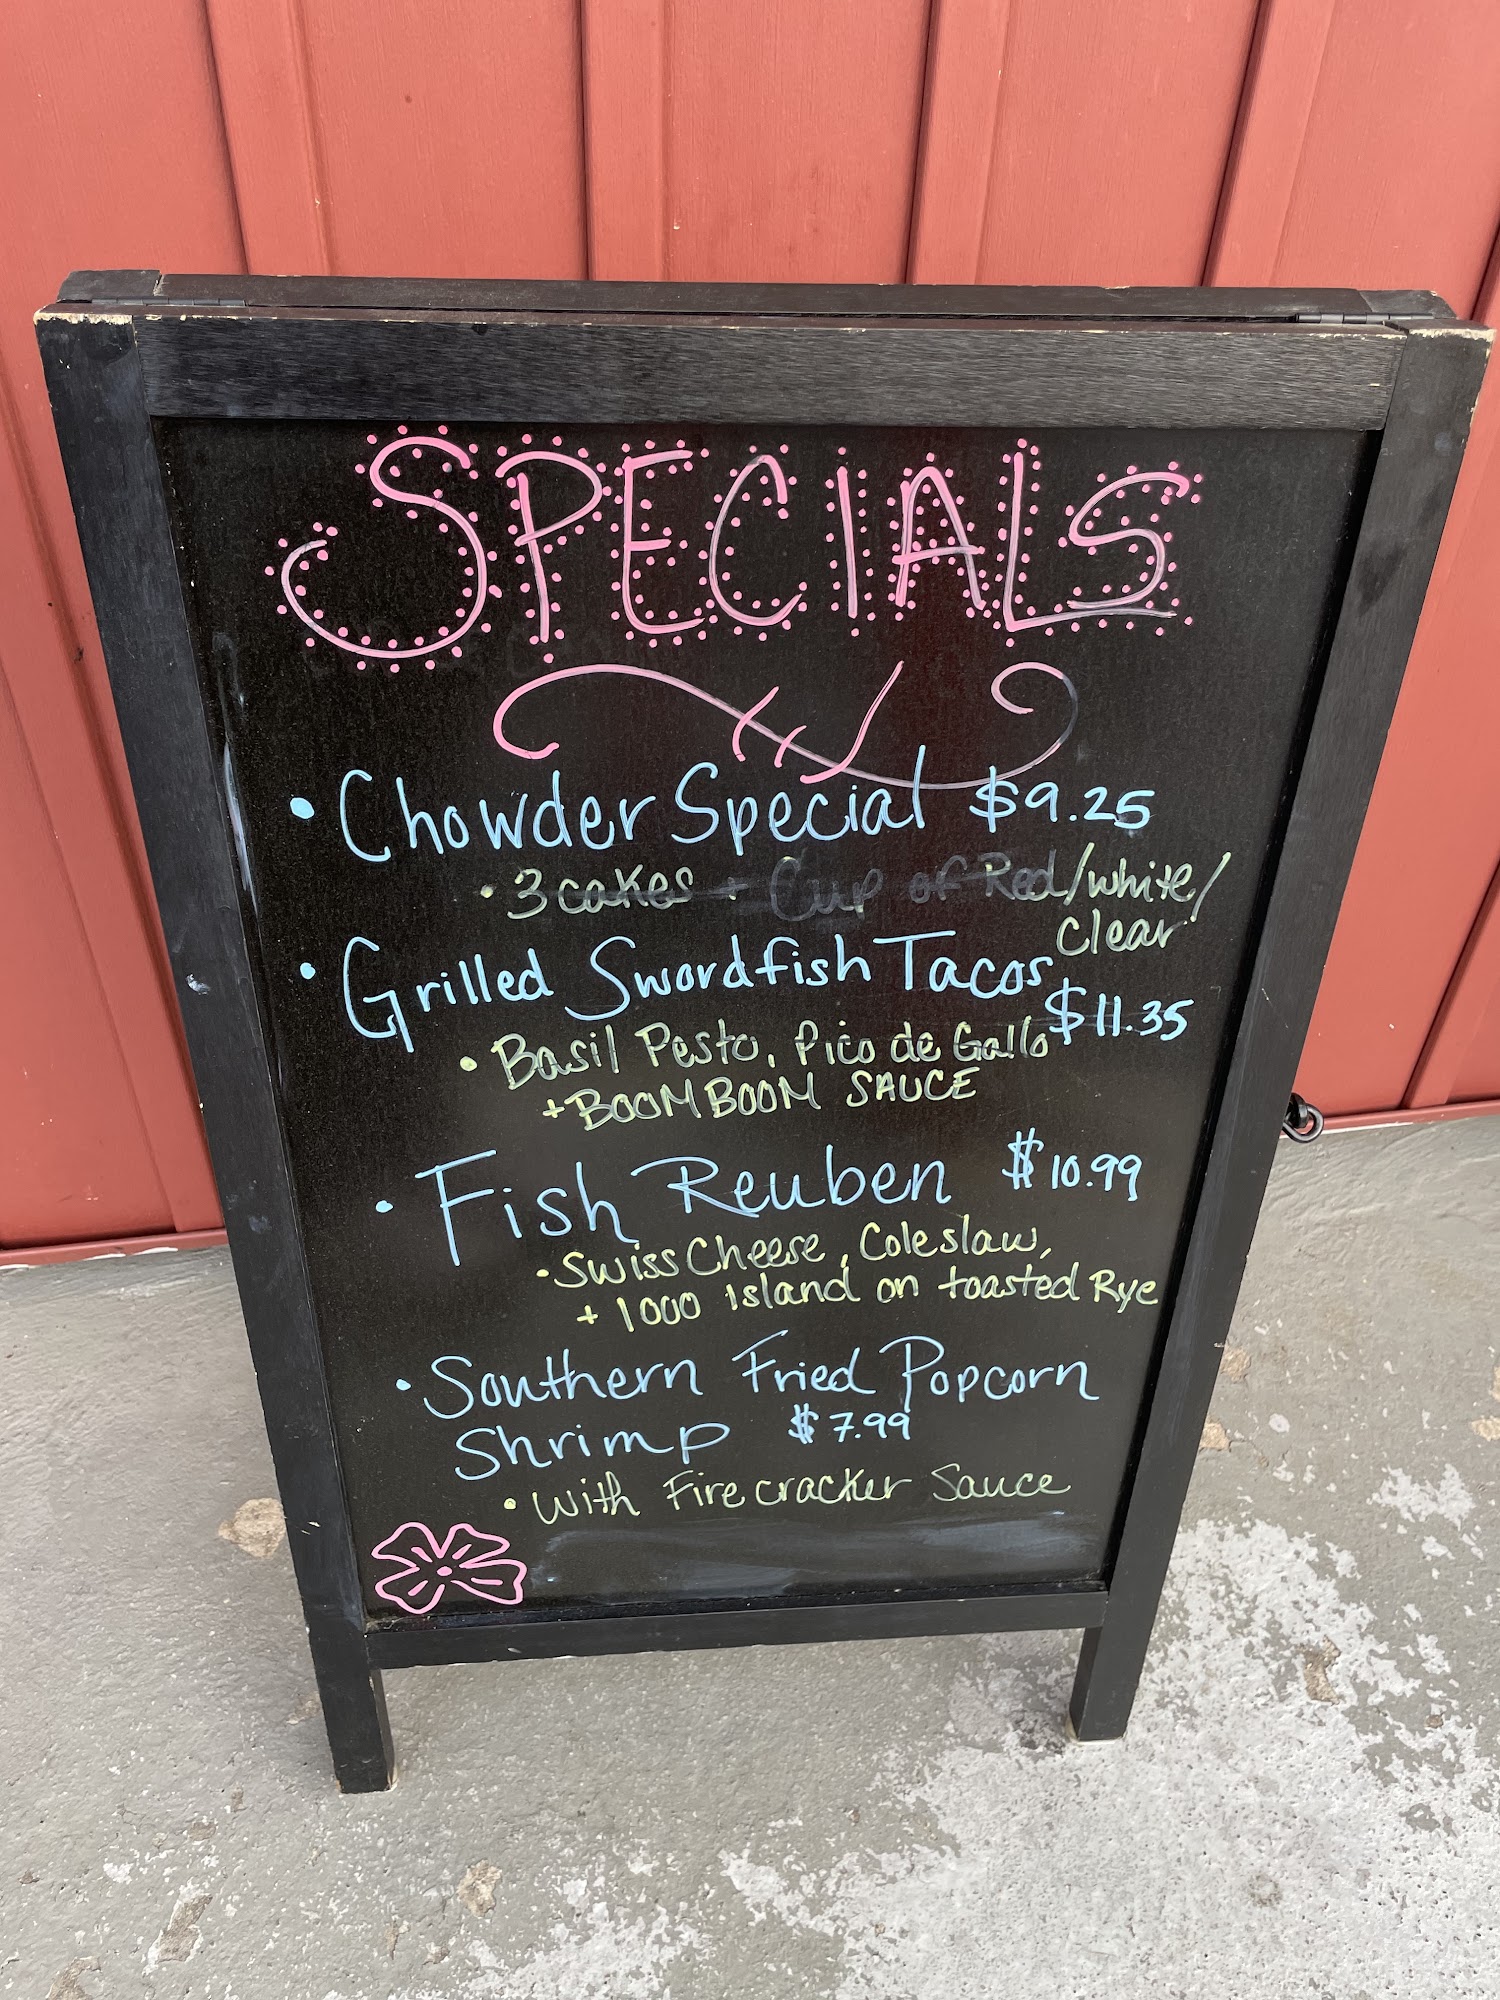 SPECIALS
• Chowder Special $9.25
• 3 cakes + Cup of Red/white/
clear
• Grilled Swordfish Tacos
$11.35
• Basil Pesto, Pico de Gallo
+ BOOM BOOM SAUCE
• Fish Reuben $10.99
• Swiss Cheese, Coleslaw,
+ 1000 island on toasted Rye
• Southern Fried Popcorn
Shrimp $7.99
• with Firecracker Sauce